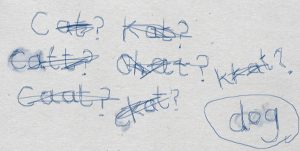 Cat? Kat?
Catt? Chat? Kkat?
Caat? Ckat? dog